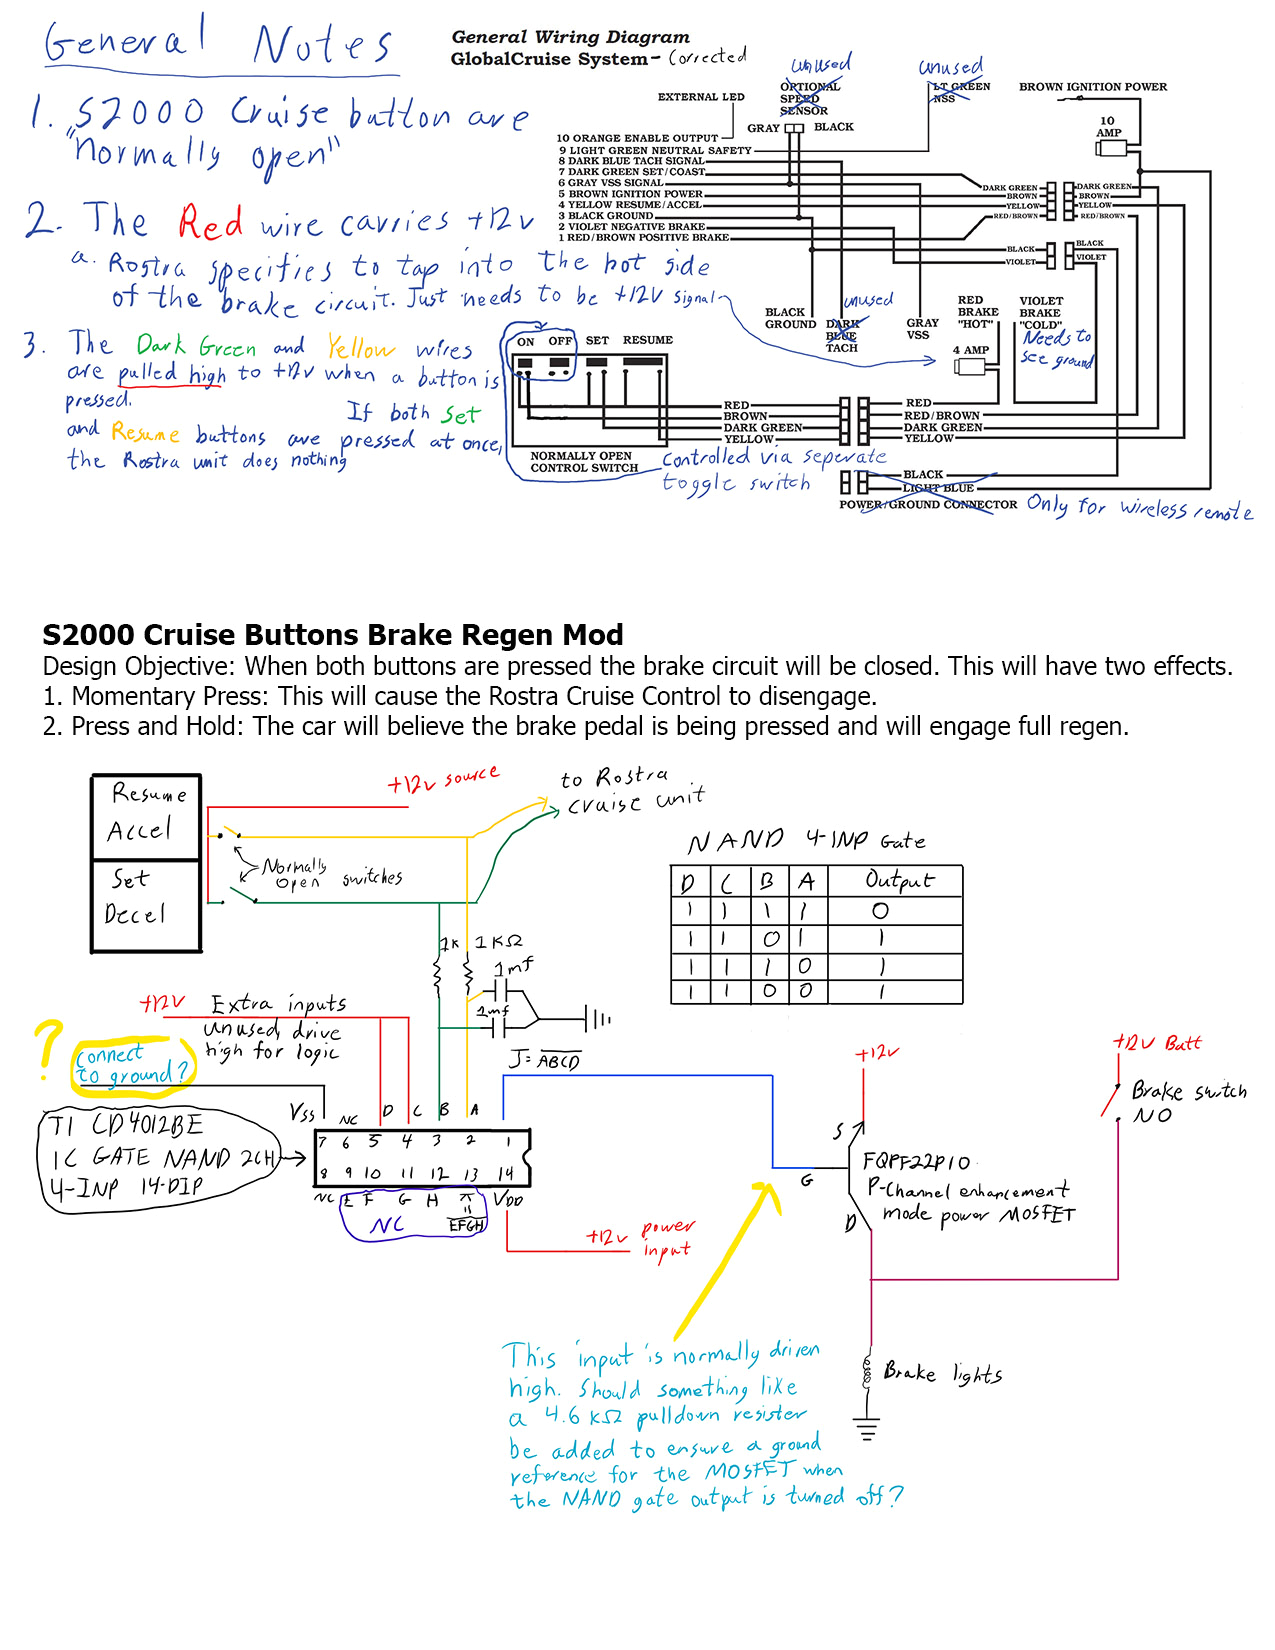 General Notes
1. S2000 Cruise button are
"normally open"
2. The Red wire carries +12v
a. Rostra specifies to tap into the hot side
of the brake circuit. Just needs to be +12V signal
3. The Dark Green and Yellow wires
are pulled high to +12V when a button is
pressed.
If both Set
and Resume buttons are pressed at once,
the Rostra unit does nothing
General Wiring Diagram
GlobalCruise System - Corrected
unused
OPTIONAL
SPEED
SENSOR
unused
LT GREEN
NSS
BROWN IGNITION POWER
EXTERNAL LED
GRAY
BLACK
10
AMP
10 ORANGE ENABLE OUTPUT
9 LIGHT GREEN NEUTRAL SAFETY
8 DARK BLUE TACH SIGNAL
7 DARK GREEN SET/COAST
6 GRAY VSS SIGNAL
5 BROWN IGNITION POWER
4 YELLOW RESUME/ACCEL
3 BLACK GROUND
2 VIOLET NEGATIVE BRAKE
1 RED/BROWN POSITIVE BRAKE
DARK GREEN
BROWN
YELLOW
RED/BROWN
DARK GREEN
BROWN
YELLOW
RED/BROWN
BLACK
VIOLET
BLACK
VIOLET
BLACK
GROUND
unused
DARK
BLUE
TACH
GRAY
VSS
RED
BRAKE
"HOT"
VIOLET
BRAKE
"COLD"
Needs to
see ground
4 AMP
ON OFF SET RESUME
RED
BROWN
DARK GREEN
YELLOW
RED
RED/BROWN
DARK GREEN
YELLOW
NORMALLY OPEN
CONTROL SWITCH
Controlled via seperate
toggle switch
BLACK
LIGHT BLUE
POWER/GROUND CONNECTOR
Only for wireless remote
S2000 Cruise Buttons Brake Regen Mod
Design Objective: When both buttons are pressed the brake circuit will be closed. This will have two effects.
1. Momentary Press: This will cause the Rostra Cruise Control to disengage.
2. Press and Hold: The car will believe the brake pedal is being pressed and will engage full regen.
Resume
Accel
Set
Decel
+12v source
to Rostra
cruise unit
Normally
open switches
1K 1KΩ
1mf
1mf
NAND 4-INP Gate
D C B A Output
1 1 1 1 0
1 1 0 1 1
1 1 1 0 1
1 1 0 0 1
+12V
Extra inputs
unused, drive
high for logic
?
Connect
to ground?
J = ABCD
Vss NC D C B A
TI CD4012BE
IC GATE NAND 2CH
4-INP 14-DIP
7 6 5 4 3 2 1
8 9 10 11 12 13 14
NC E F G H K VDD
=
EFGH
NC
+12v power
input
+12v
S
G
D
FQPF22P10
P-Channel enhancement
mode power MOSFET
+12v Batt
Brake switch
NO
Brake lights
This input is normally driven
high. Should something like
a 4.6 kΩ pulldown resister
be added to ensure a ground
reference for the MOSFET when
the NAND gate output is turned off?